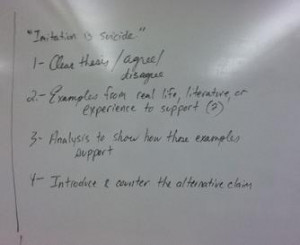 "Imitation is suicide"
1- Clear thesis / agree /
disagree
2- Examples from real life, literature, or
experience to support (2)
3- Analysis to show how those examples
support
4- Introduce & counter the alternative claim